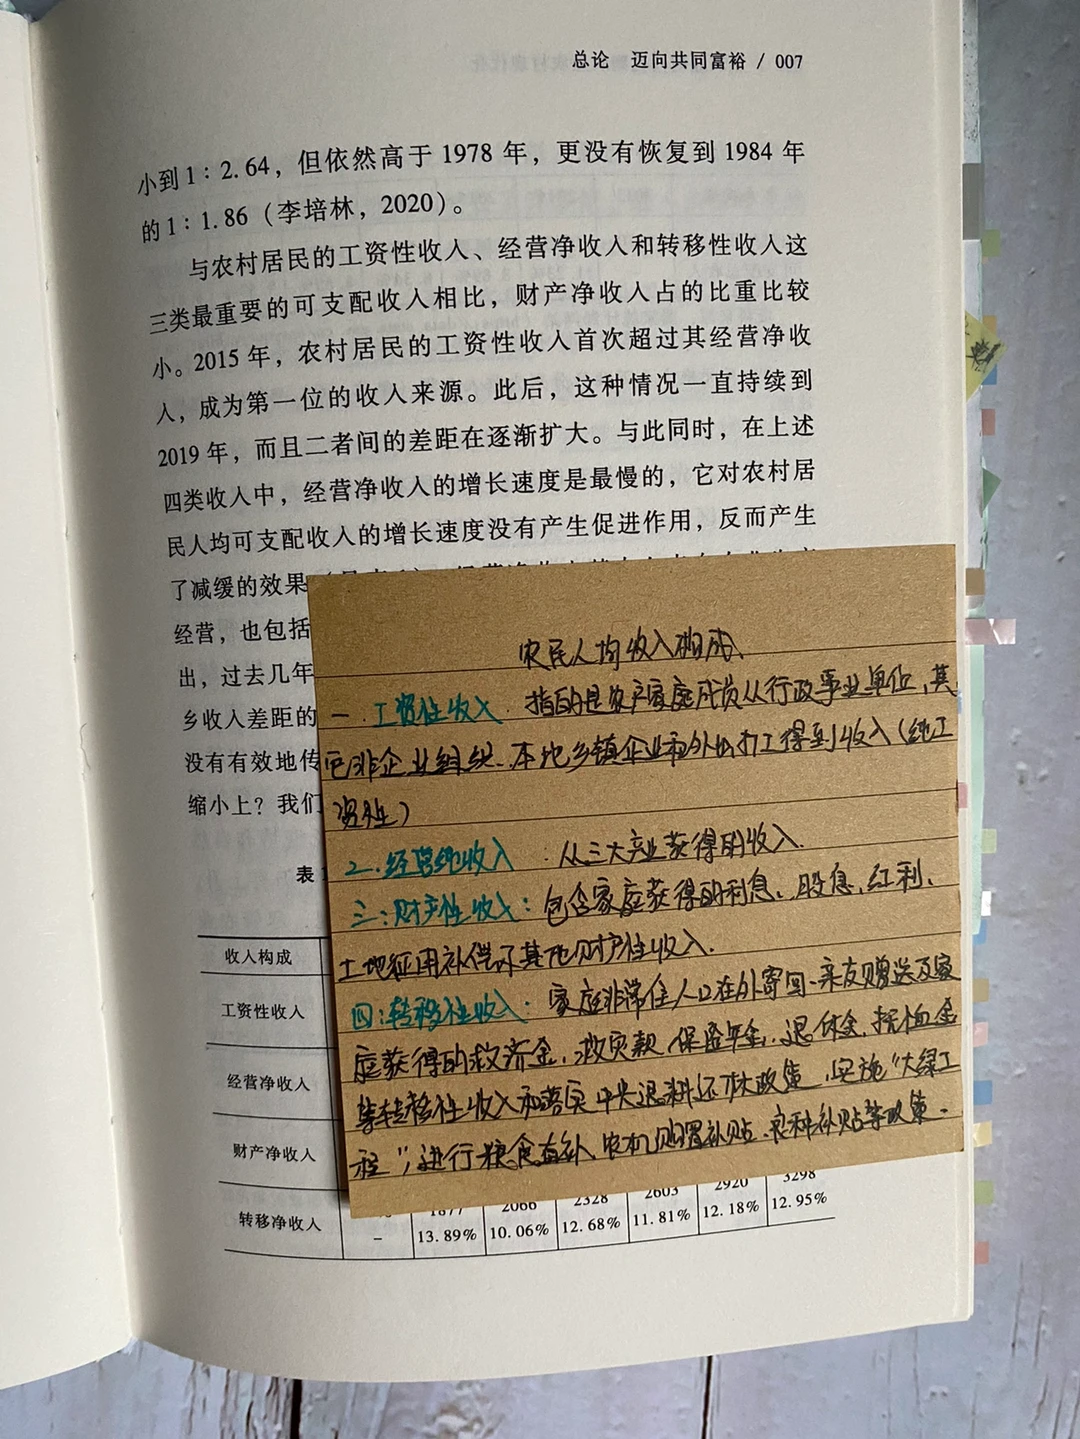 总论 迈向共同富裕 / 007
小到 1∶2.64，但依然高于 1978 年，更没有恢复到 1984 年
的 1∶1.86（李培林，2020）。
与农村居民的工资性收入、经营净收入和转移性收入这
三类最重要的可支配收入相比，财产净收入占的比重比较
小。2015 年，农村居民的工资性收入首次超过其经营净收
入，成为第一位的收入来源。此后，这种情况一直持续到
2019 年，而且二者间的差距在逐渐扩大。与此同时，在上述
四类收入中，经营净收入的增长速度是最慢的，它对农村居
民人均可支配收入的增长速度没有产生促进作用，反而产生
了减缓的效果
经营，也包括
出，过去几年
乡收入差距的
没有有效地传
缩小上？我们
表
农民人均收入构成
一.工资性收入 指的是农户家庭成员从行政事业单位,其
它非企业组织、本地乡镇企业和外出打工得到收入(纯工
资性)
2.经营纯收入 :从三大产业获得的收入.
三:财产性收入:包含家庭获得的利息、股息,红利、
土地征用补偿及其他财产性收入.
四:转移性收入:家庭非常住人口在外寄回、亲友赠送及家
庭获得的救济金,救灾款,保险年金,退休金,抚恤金
等转移性收入和落实中央退耕还林政策,实施“大绿工
程”,进行粮食直补、农机购置补贴、良种补贴等政策.
收入构成
工资性收入
经营净收入
财产净收入
转移净收入
1877 2066 2328 2603 2920 3298
– 13.89% 10.06% 12.68% 11.81% 12.18% 12.95%